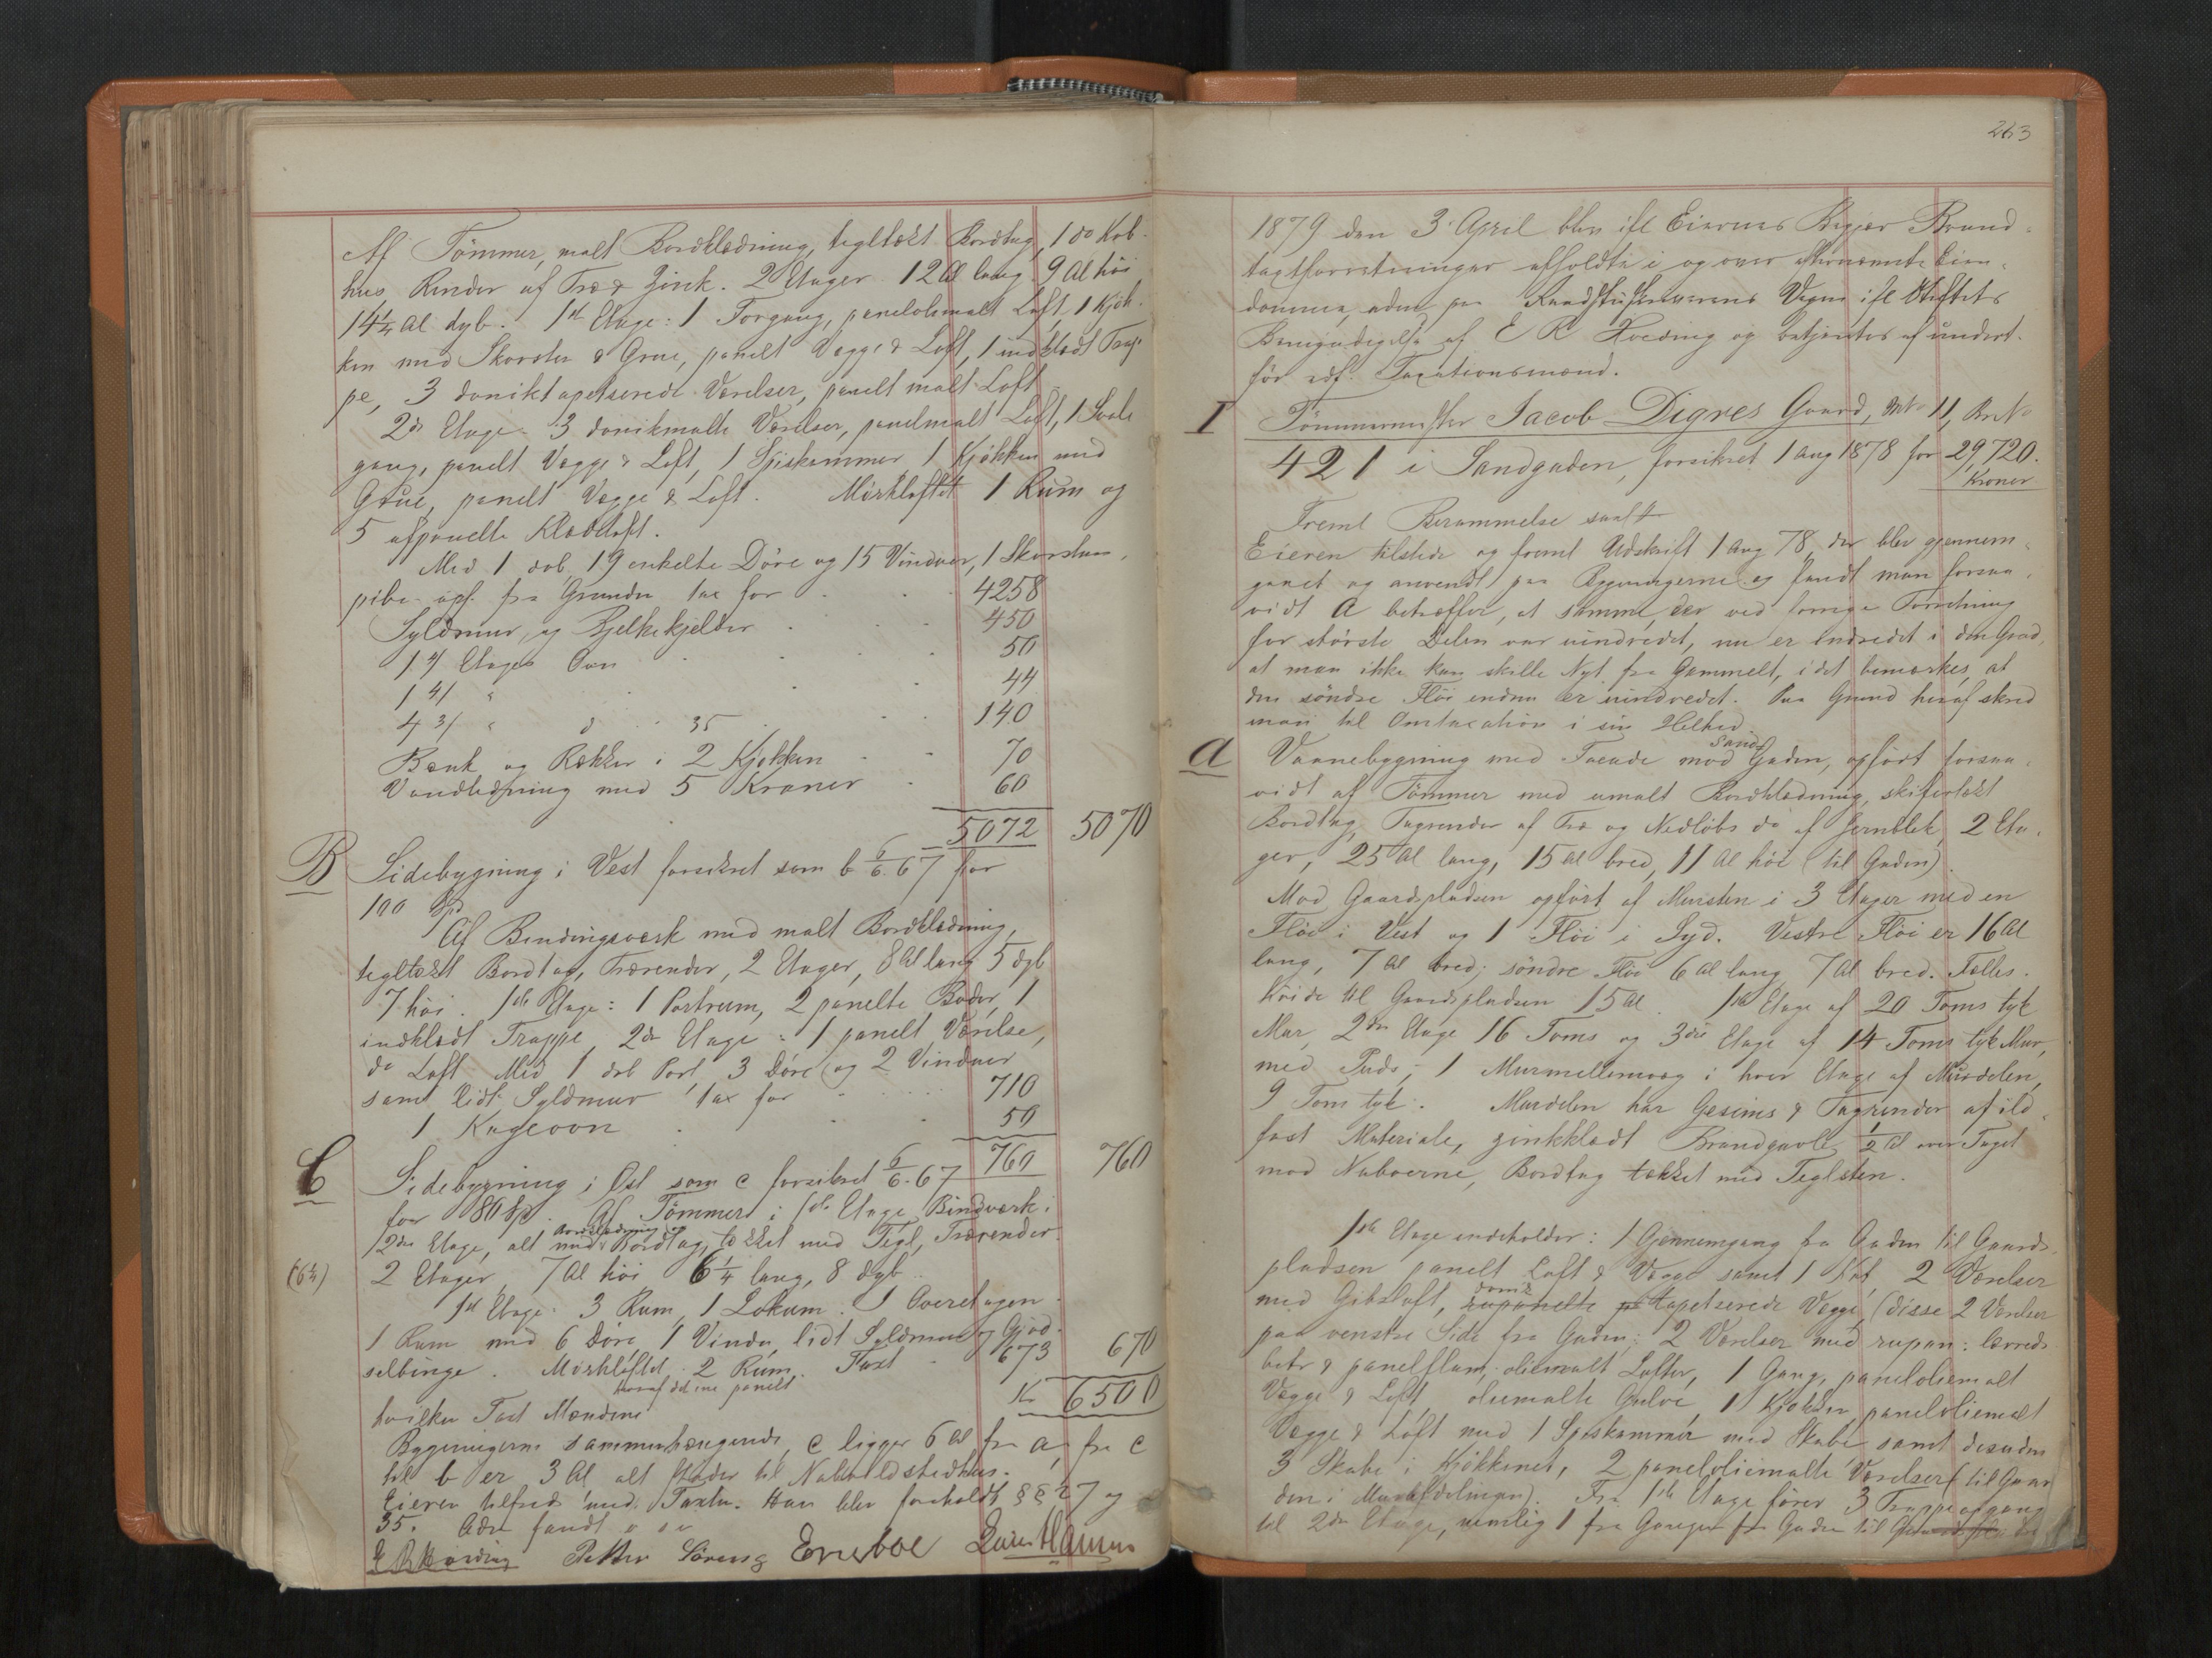 Af Tömmer, malt Bordklædning, tegltækt Bordtag, 1 do Kob-
hus, Render af Træ & Zink. 2 Etager 12 Al lang 9 Al höi
14¼ Al dyb. 1ste Etage: 1 Forgang, paneloliemalt Loft, 1 Kjök-
ken med Skorsten & Grue, panelt Vægge & Loft, 1 indklædt Trap-
pe, 3 doniktapetserede Værelser, panelt malt Loft
2den Etage 3 donikmalte Værelser, panelmalt Loft, 1 Svale
gang, panelt Vægge & Loft, 1 Spiskammer 1 Kjökken med
Grue, panelt Vægge & Loft. Mörkloftet 1 Rum og
5 afpanelte Klædeloft.
Med 1 dob, 19 enkelte Döre og 15 Vinduer, 1 Skorstens
pibe opf. fra Grunden tax for 4258
Syldmur, og Bjelkekjelder 450
1 2/ Etages Ovn 50
1 4/ " 44
4 3/ " à 35 140
Bænk og Rækker i 2 Kjøkken 70
Vandledning med 5 Kraner 60
5072 5070
B Sidebygning i Vest forsikret som b 6/6 67 for
190 Spd
Af Bindingsværk med malt Bordklædning,
tegltækt Bordtag, Trærender, 2 Etager, 8 Al lang 5 dyb
7 höi. 1ste Etage: 1 Portrum, 2 panelte Boder, 1
indklædt Trappe, 2den Etage: 1 panelt Værelse,
do Loft Med 1 dob Port, 3 Döre og 2 Vinduer
samt lidt Syldmur tax for 710
1 Kageovn 50
760 760
C Sidebygning i Øst som c forsikret 6/6 67
for 80 Sp. Af Tömmer i 1ste Etage Bindværk i
2den Etage, alt med Bordklædning og Bordtag, tækket med Tegl, Trærender.
(6¼) 2 Etager, 7 Al höi 6¼ lang, 8 dyb
1ste Etage: 3 Rum, 1 Lokum. I Overetagen
1 Rum med 6 Döre, 1 Vindu, lidt Syldmur & Gjöd-
selbinge. Mörkloftet 2 Rum. Taxt 673 670
hvoraf det ene panelt
hvilken Taxt Mændene Kr 6500
Bygningerne sammenhængende, c ligger 6 Al fra a, fra c
til b er 3 Al alt Støder til Naboildstedhus.
Eieren tilfreds med Taxten. Han blev foreholdt §§ 27 og
35.
E R Hoeding Petter Sörensg
1879 den 3 April blev ifl Eiernes Begjær Brand-
taxtforretninger afholdte i og over efternævnte Eien-
domme, uden paa Raadstueskriverens Vegne ifl Stiftets
Bemyndigelse af E R Hoeding og betjentes af undert.
för edf. Taxationsmænd.
I Tömmermester Jacob Digres Gaard, Mtr No 11, Br No
421 i Sandgaden, forsikret 1 Aug 1878 for 29,720.
Kroner
Freml Berammelse saal
Eieren tilstede og freml Udskrift 1 Aug 78, der blev gjennem-
gaaet og anvendt paa Bygningerne og fandt man forsaa-
vidt A betræffer, at samme, der ved forrige Forretning
for störste Delen var uindredet, nu er indredet i den Grad,
at man ikke kan skille Nyt fra Gammelt, idet bemærkes, at
den söndre Flöi endnu er uindredet. Paa Grund heraf skred
man til Omtaxation i sin Helhed
A Vaanebygning med Facade mod Sandgaden, opfört forsaa-
vidt af Tömmer med umalt Bordklædning, skifertækt
Bordtag, Tagrender af Træ og Nedlöbs do af Jernblik, 2 Eta-
ger, 25 Al lang, 15 Al bred, 11 Al höi (til Gaden)
Mod Gaardspladsen opfört af Mursten i 3 Etager med en
Flöi i Vest og 1 Flöi i Syd. Vestre Flöi er 16 Al
lang, 7 Al bred; söndre Flöi 6 Al lang 7 Al bred. Fælles-
höide til Gaardspladsen 15 Al. 1ste Etage af 20 Toms tyk
Mur, 2den Etage 16 Toms og 3die Etage af 14 Toms tyk Mur,
med Puds, 1 Murmellemvæg i hver Etage af Murdelen,
9 Tom tyk. Murdelen har Gesims & Tagrender af ild-
fast Materiale, zinkklædt Brandgavle ½ Al over Taget
mod Naboerne, Bordtag tækket med Teglsten.
1ste Etage indeholder: 1 Gjennemgang fra Gaden til Gaards-
pladsen panelt Loft & Vægge samt 1 2 Værelser
med Gibsloft, donik tapetserede Vægge, (disse 2 Værelser
paa venstre Side fra Gaden; 2 Værelser med rupan: lærreds
betr & panelflam. oliemalt Lofter, 1 Gang, paneloliemalt
Vægge & Loft, oliemalte Gulve, 1 Kjökken, paneloliemalt
Vægge & Loft med 1 Spiskammer med Skabe samt desuden
3 Skabe i Kjökkenet, 2 paneloliemalte Værelser (til Gaar
den i Murafdelingen). Fra 1ste Etage förer 3 Trappeopgang
til 2den Etage, nemlig 1 fra Gangen fra Gaden til
263